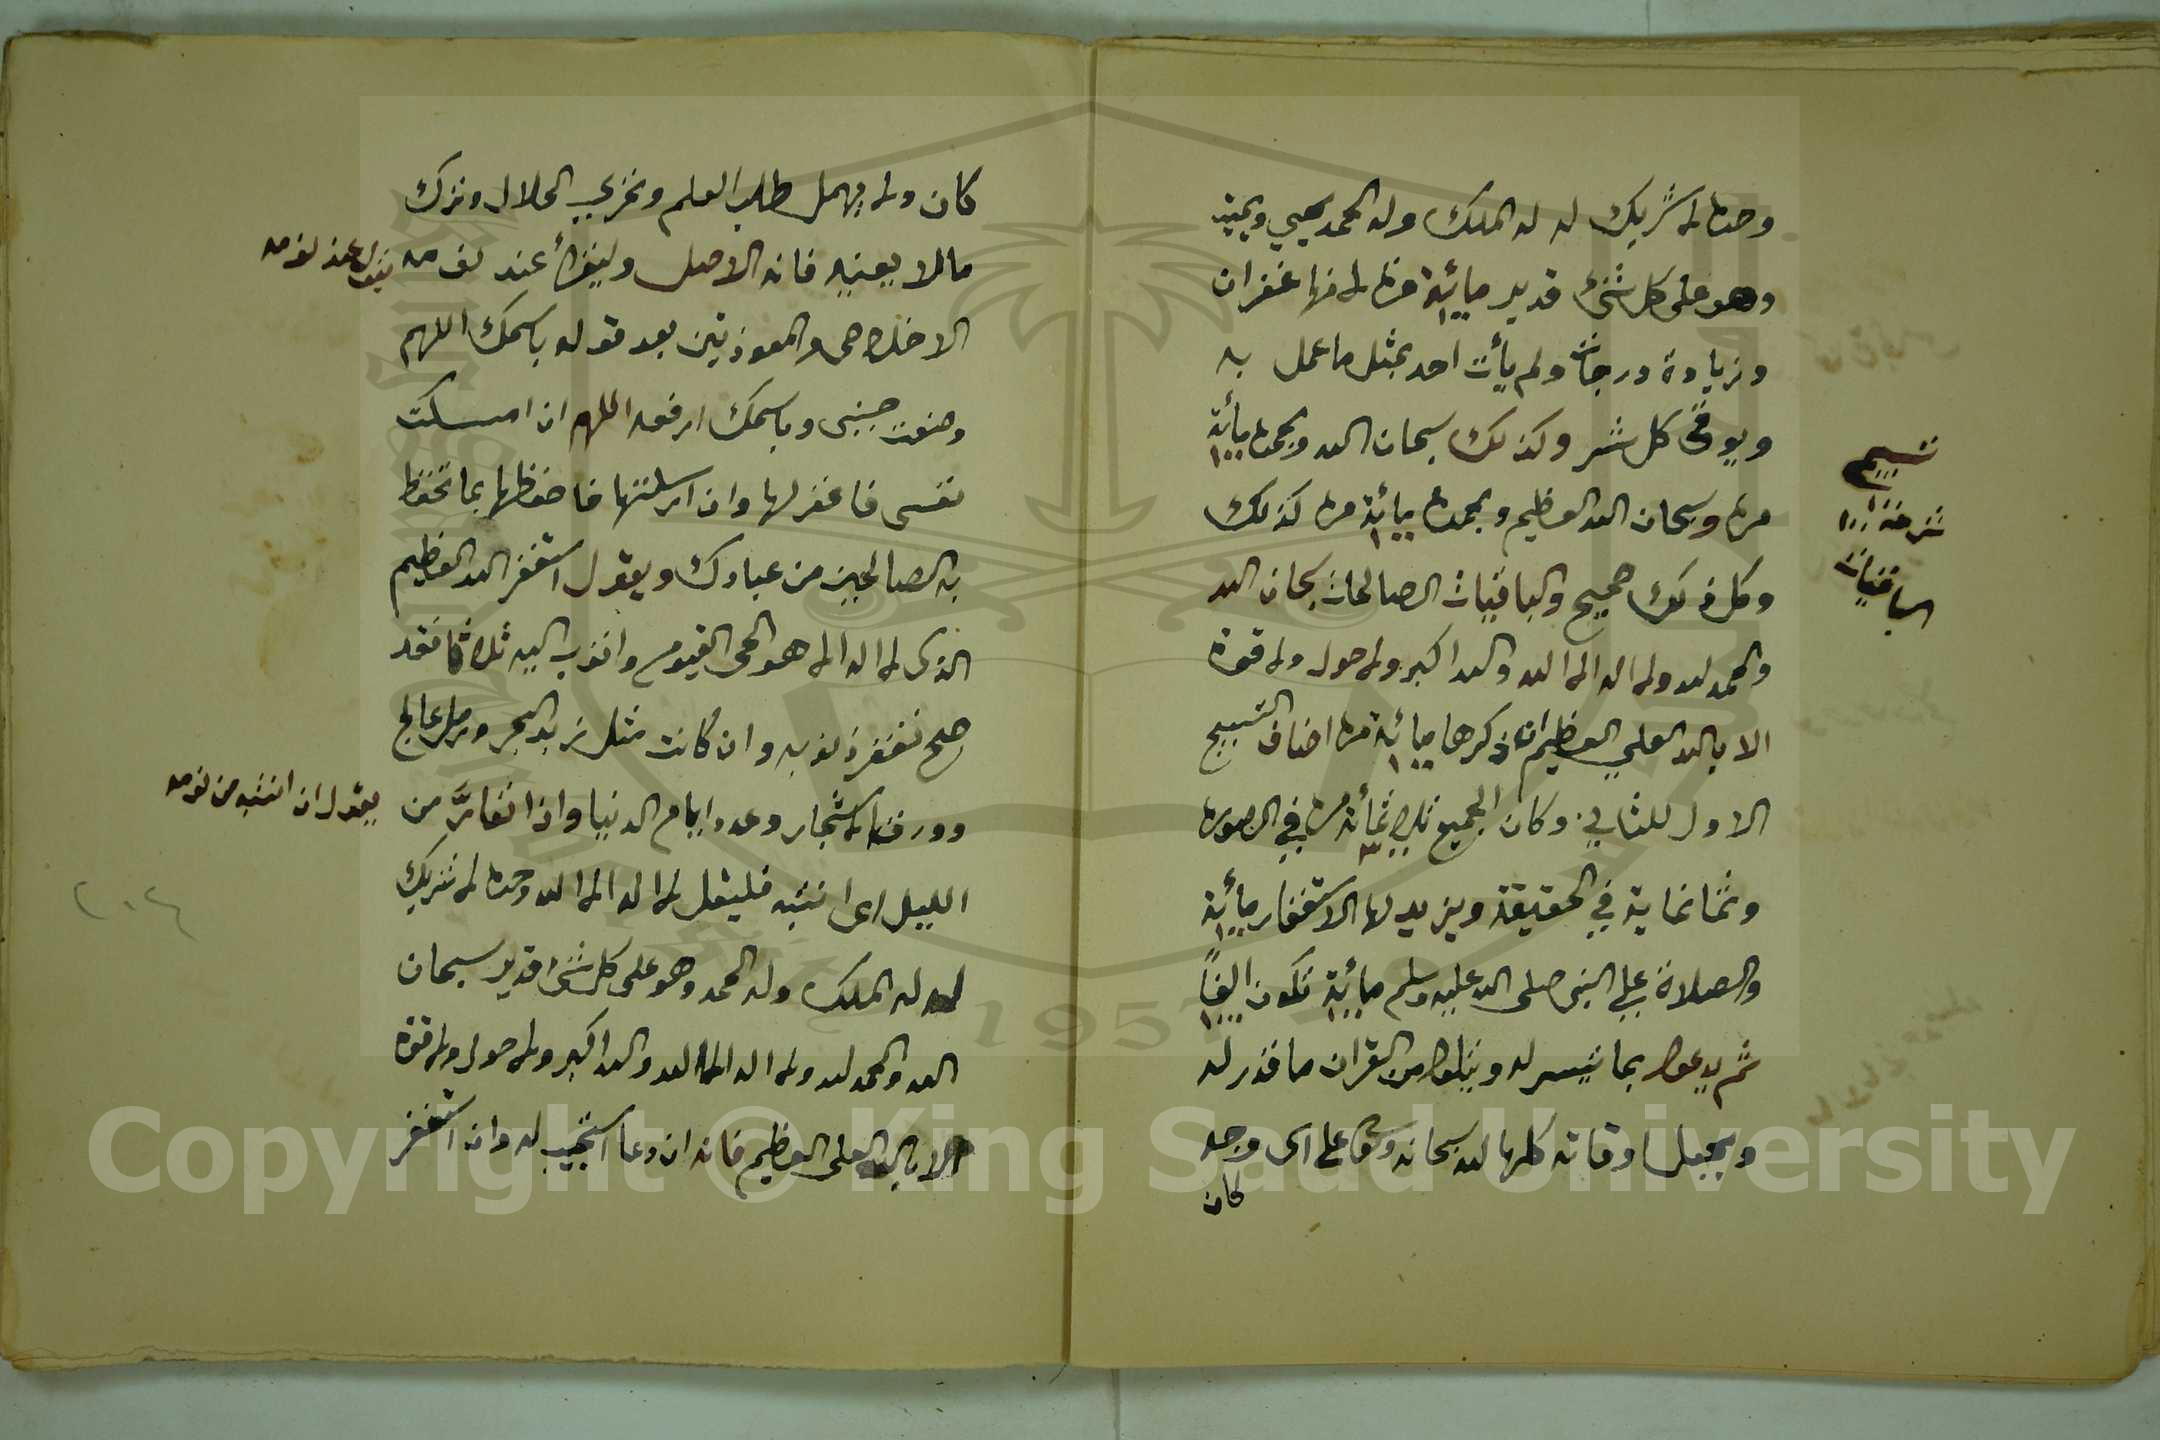 وحده لا شريك له له الملك وله الحمد يحيي ويميت
وهو على كل شئ قدير مائة مرة لا نها غفران
وزيادة درجات ولم يأت احد بمثل ما عمل به
ويوقى كل شر وكذلك سبحان الله وبحمده مائة
١٠٠
مرة وسبحان الله العظيم وبحمده مائة مرة كذلك
١٠٠
وكل ذلك صحيح والباقيات الصالحات سبحان الله
والحمد لله ولا اله الا الله والله اكبر ولا حول ولا قوة
الا بالله العلي العظيم ان ذكرها مائة مرة اضاف التسبيح
١٠٠
الاول للثاني وكان الجميع ثلاثمائة مرة في الصورة
٣٠٠
وثمانماية في الحقيقة ويزيد لها الاستغفار مائة
١٠٠
والصلاة على النبي صلى الله عليه وسلم مائة تكون الفاً
١٠٠ ١٠٠٠
ثم يدعوا بما تيسر له ويتلوا من القران ما قدر له
ويجعل اوقاته كلها لله سبحانه وتعالى اى وجه
كان
تسبيح
١٠٠
الباقيات
كان ولا يهمل طلب العلم وتحري الحلال وترك
مالا يعنيه فانه الاصل وليقرأ عند نومه
يقول عند نومه
الاخلاص والمعوذتين بعد قوله باسمك اللهم
وضعت جنبى وباسمك ارفعه اللهم ان امسكت
نفسى فاغفر لها وان ارسلتها فاحفظها بما تحفظ
به الصالحين من عبادك ويقول استغفر الله العظيم
الذى لا اله الا هو الحى القيوم واتوب اليه ثلاثا فقد
صح تغفر ذنوبه وان كانت مثل زبد البحر ورمل عالج
وورق الاشجار وعدد ايام الدنيا واذا تعارّ من
يقول ان انتبه من نومه
الليل اى انتبه فليقل لا اله الا الله وحده لا شريك
له له الملك وله الحمد وهو على كل شئ قدير سبحان
الله والحمد لله ولا اله الا الله والله اكبر ولا حول ولا قوة
الا بالله العلى العظيم فانه ان دعا استجيب له وان استغفر
٢٠٤
Copyright © King Saud University
1957